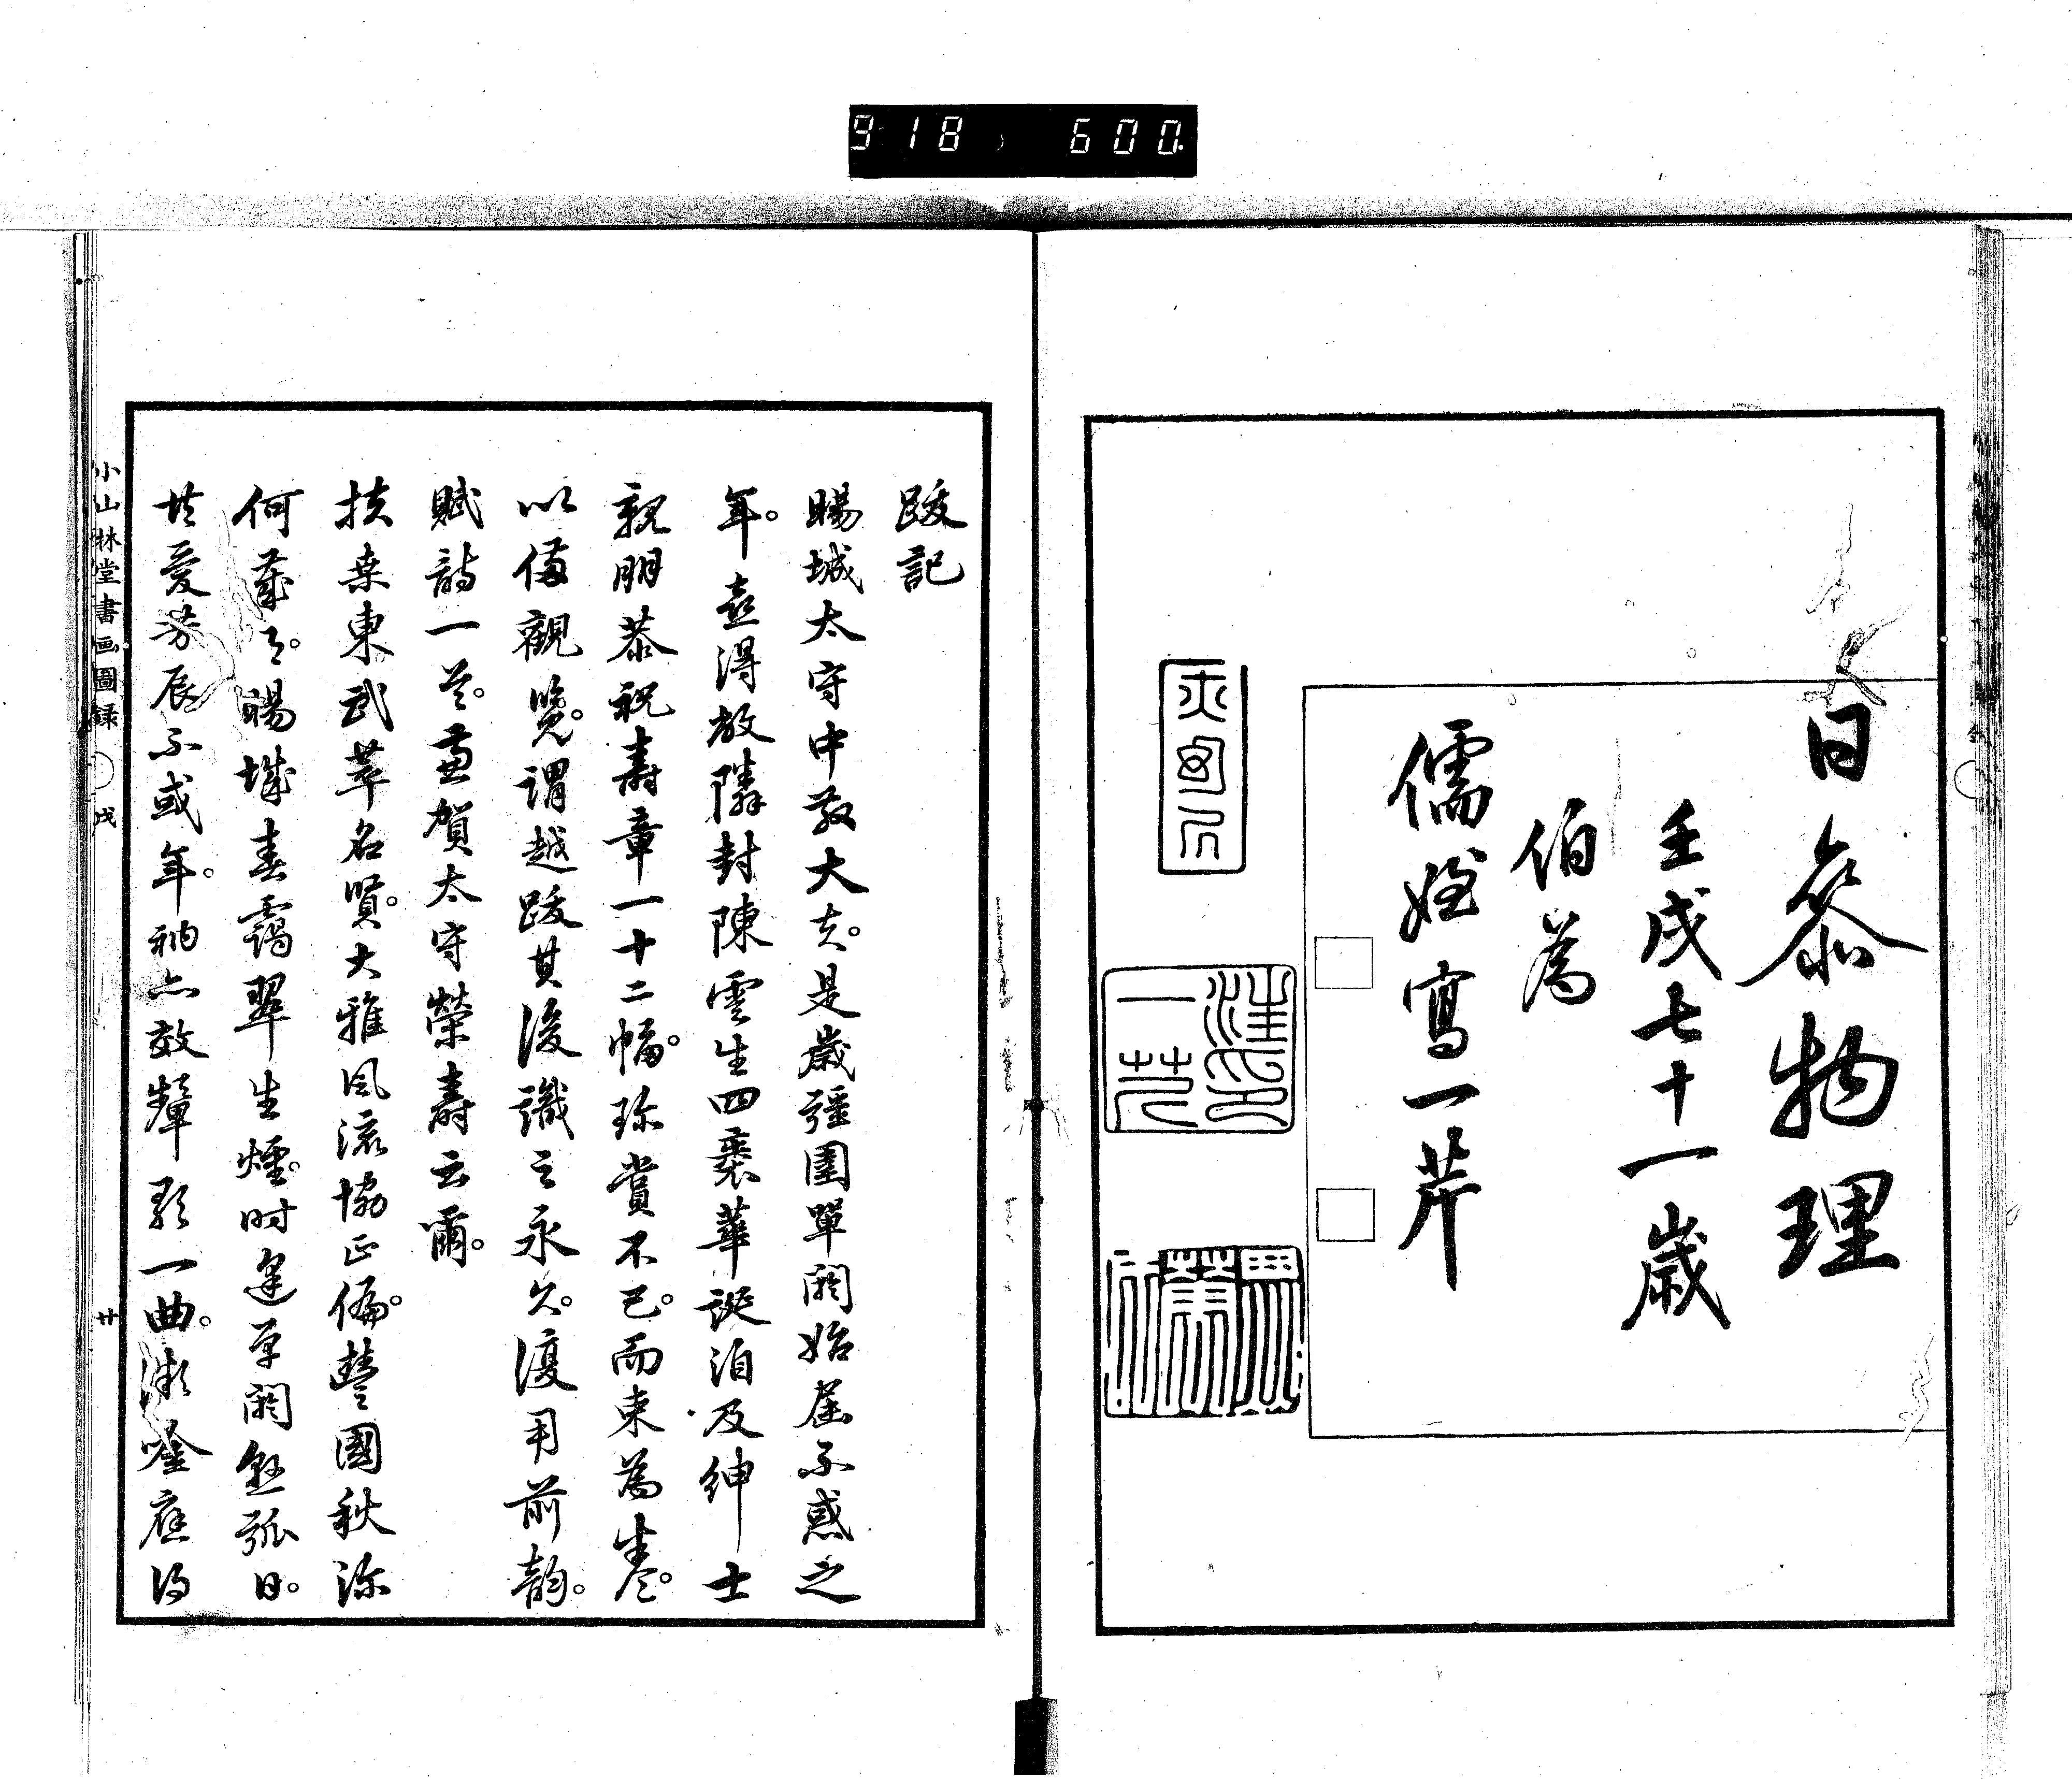 918 600.
日參物理
壬戌七十一歲
伯為
儒姪寫一芹
汪一芹
跋記
暘城太守中散大夫。是歲彊圉單閼始屆不惑之
年。喜得故隣封陳雲生四袠華誕洎及紳士
親朋恭祝壽章一十二幅。珍賞不已。而束為卷。
以備觀覽。謂越跋其後識之永久。復用前韵。
賦詩一首。兼賀太守榮壽云爾。
扶桑東武萃名賢。大雅風流協正偏。豐國秋添
何歲月。暘城春靄翠生煙。時逢單閼懸弧日。
世愛芳辰不惑年。衲亦效顰歌一曲。
小山林堂書画圖錄
戊
廿